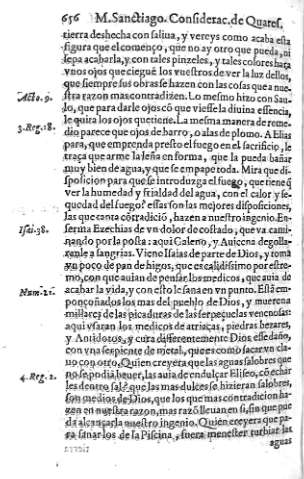 656 M. Sanctiago. Considerac. de Quares.
tierra deshecha con saliua, y vereys como acaba esta
figura que el començo, que no ay otro que pueda, ni
sepa acabarla, y con tales pinzeles, y tales colores hara
vnos ojos que ciegue los vuestros de ver la luz dellos,
que siempre sus obras se hazen con las cosas que a nue-
Acto. 9.
stra razon mas contradizen. Lo mesmo hizo con Sau-
lo, que para darle ojos cõ que viesse la diuina essencia,
le quita los ojos que tiene. La mesma manera de reme-
dio parece que ojos de barro, o alas de plomo. A Elias
3. Reg. 18.
para, que emprenda presto el fuego en el sacrificio, le
traça que arme la leña en forma, que la pueda bañar
muy bien de agua, y que se empape toda. Mira que di-
sposicion para que se introduzga el fuego, que tiene q̃
ver la humedad y frialdad del agua, con el calor y se-
quedad del fuego? essas son las mejores disposiciones,
las que tanta cõtradició, hazen a nuestro ingenio. En-
Isai. 38.
ferma Ezechias de vn dolor de costado, que va cami-
nando por la posta: aqui Galeno, y Auicena degolla-
ranle a sangrias. Viene Isaias de parte de Dios, y toma
vn poco de pan de higos, que es calidissimo por estre-
mo, con que auian de pensar los medicos, que auia de
Num. 21.
acabar la vida, y con esto le sana en vn punto. Está em-
ponçoñados los mas del pueblo de Dios, y mueren a
millares de las picaduras de las serpezuelas venenosas:
aqui vsaran los medicos de atriacas, piedras bezares,
y Antidotos, y cura differentemente Dios esse daño,
con vna serpiente de metal, que es como sacar vn cla-
uo con otro. Quien creyera que las aguas salobres que
4. Reg. 2.
no se podiã beuer, las auia de endulçar Eliseo, cõ echar
les dentro sal? que las mas dulces se hizieran salobres,
son medios de Dios, que los que mas contradicion ha-
zen en nuestra razon, mas razõ lleuan en si, sin que pue
da alcançarla nuestro ingenio. Quien creyera que pa-
ra sanar los de la Piscina, fuera menester turbiar las
aguas